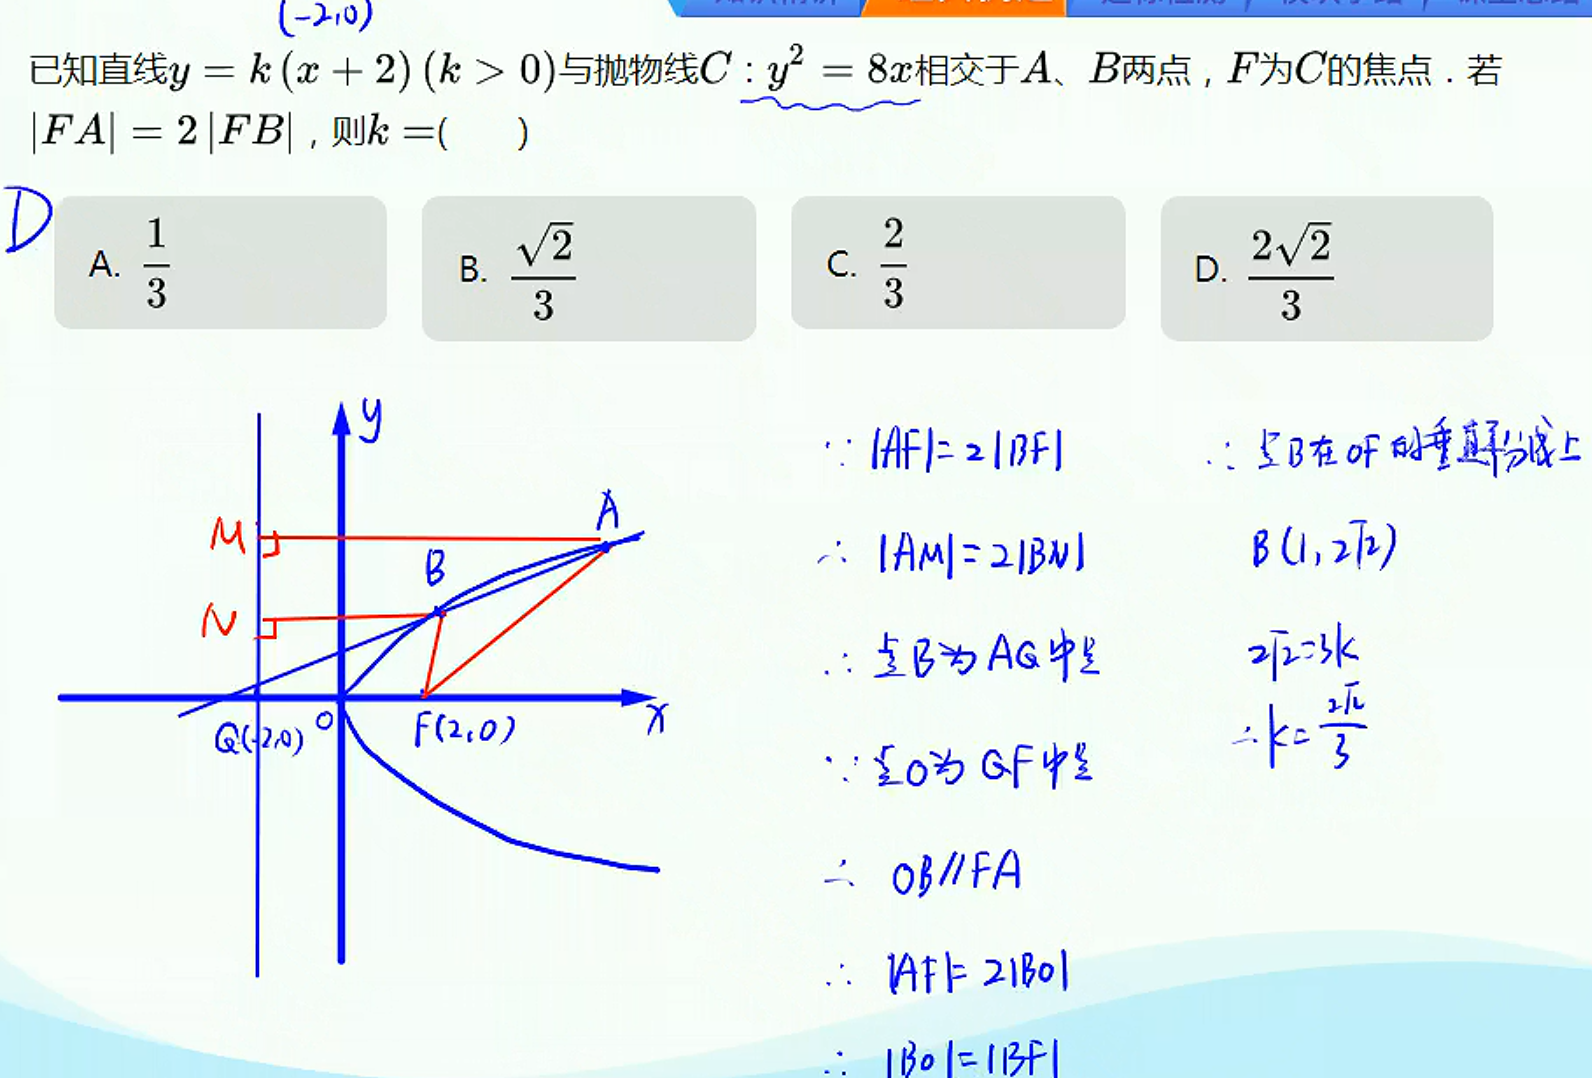 (-2,0)
已知直线y = k (x + 2) (k > 0)与抛物线C : y² = 8x相交于A、B两点，F为C的焦点．若
|FA| = 2 |FB|，则k =(      )
D
A. 1/3
B. √2/3
C. 2/3
D. 2√2/3
y
M
N
B
A
Q(-2,0)
O
F(2,0)
x
∵ |AF|=2|BF|
∴ |AM|=2|BN|
∴ 点B为AQ中点
∵ 点O为QF中点
∴ OB//FA
∴ |AF|=2|BO|
∴ |BO|=|BF|
∴ 点B在OF的垂直平分线上
B(1,2√2)
2√2=3k
∴k=2√2/3